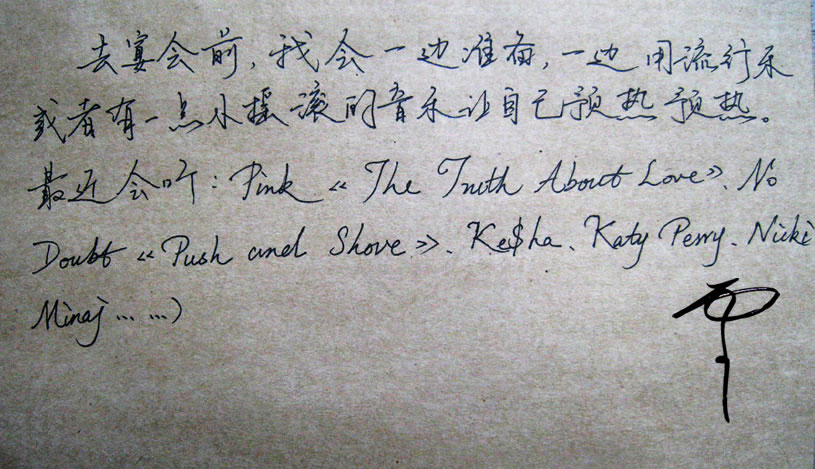 去宴会前,我会一边准备,一边用流行乐
或者有一点小摇滚的音乐让自己预热预热。
最近会听:Pink《The Truth About Love》、No
Doubt《Push and Shove》、Ke$ha、Katy Perry、Nicki
Minaj……)